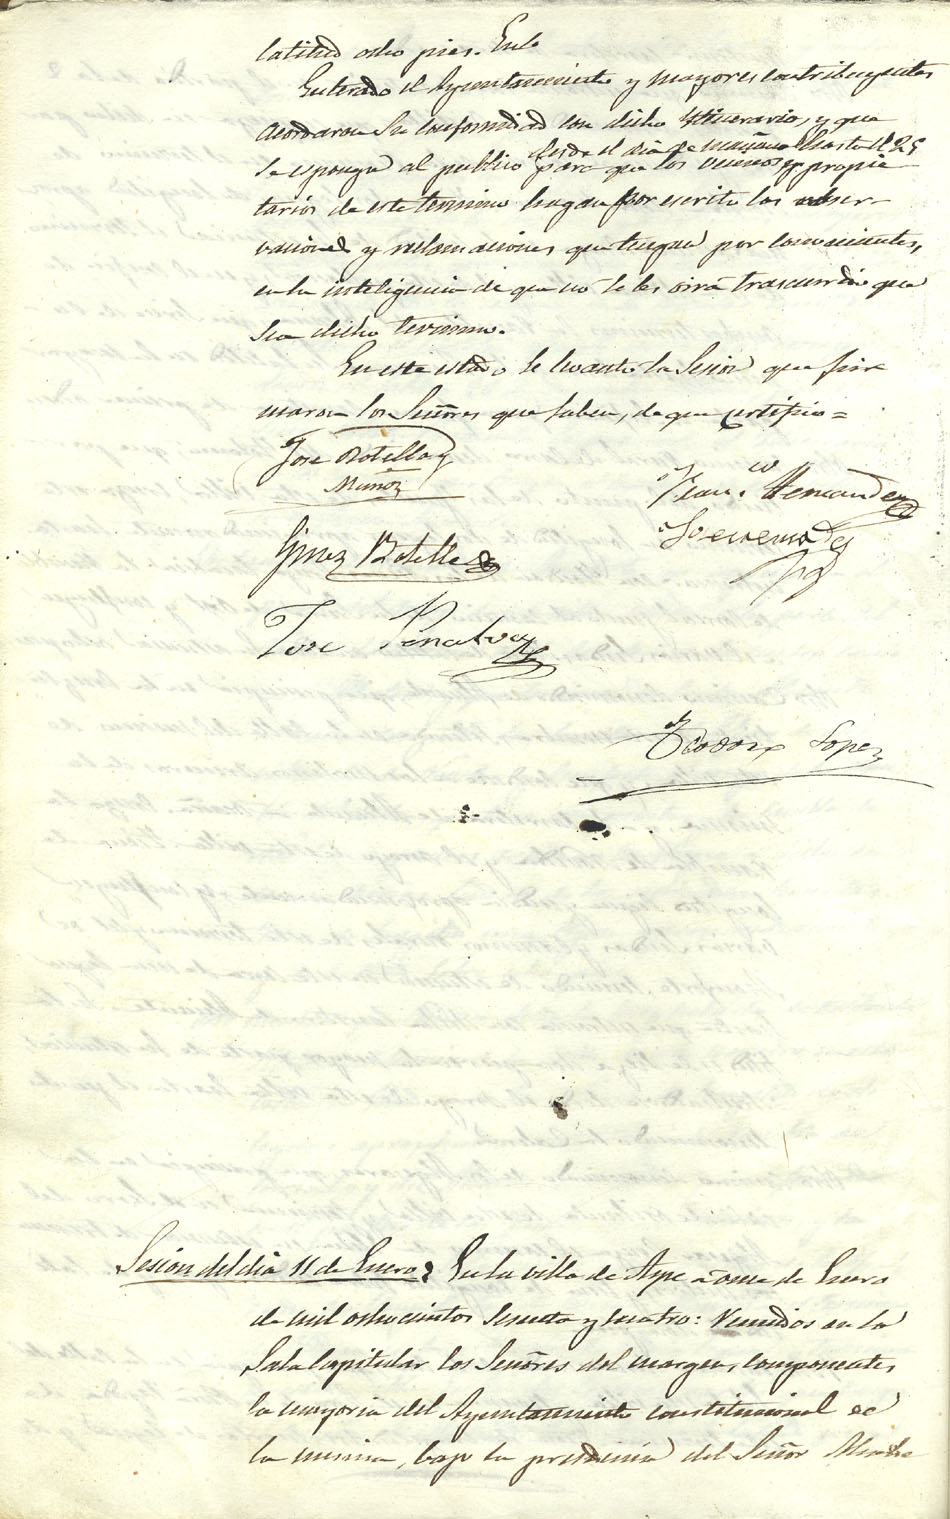 latitud ocho pies. Ente
Enterado el Ayuntamiento y mayores contribuyentes
acordaron su conformidad con dicho itinerario, y que
desde el dia de mañana hasta el 25
se esponga al publico para que los vecinos y propie
tarios de este termino hagan por escrito las obser-
vaciones y reclamaciones que tengan por convenientes,
en la inteligencia de que no se les oirá trascurrido que
sea dicho termino.
En este estado se levantó la Sesion que fir
maron los Señores que saben, de que certifico =
Jose Botella y
Muñoz
Fran.co Hernandez
Gines Botella
Jose Peñalva
Teodoro Lopez
Sesion del dia 11 de Enero En la villa de Aspe á once de Enero
de mil ochocientos sesenta y cuatro: Reunidos en la
Sala Capitular los Señores del margen, componentes
la mayoria del Ayuntamiento constitucional de
la misma, bajo la presidencia del Señor Alcalde